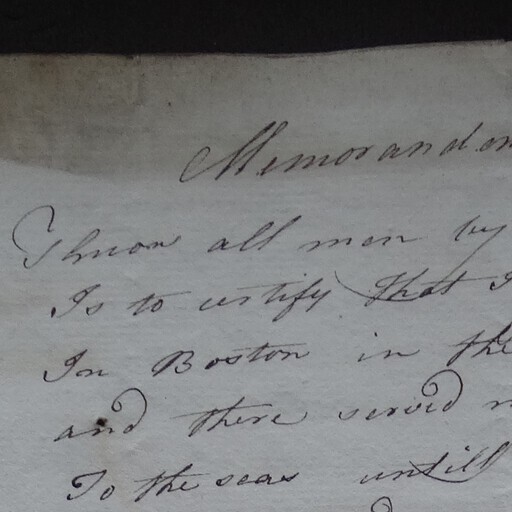 Memorandom
Know all men by
Is to certify that I
In Boston in the
and there served
To the seas untill